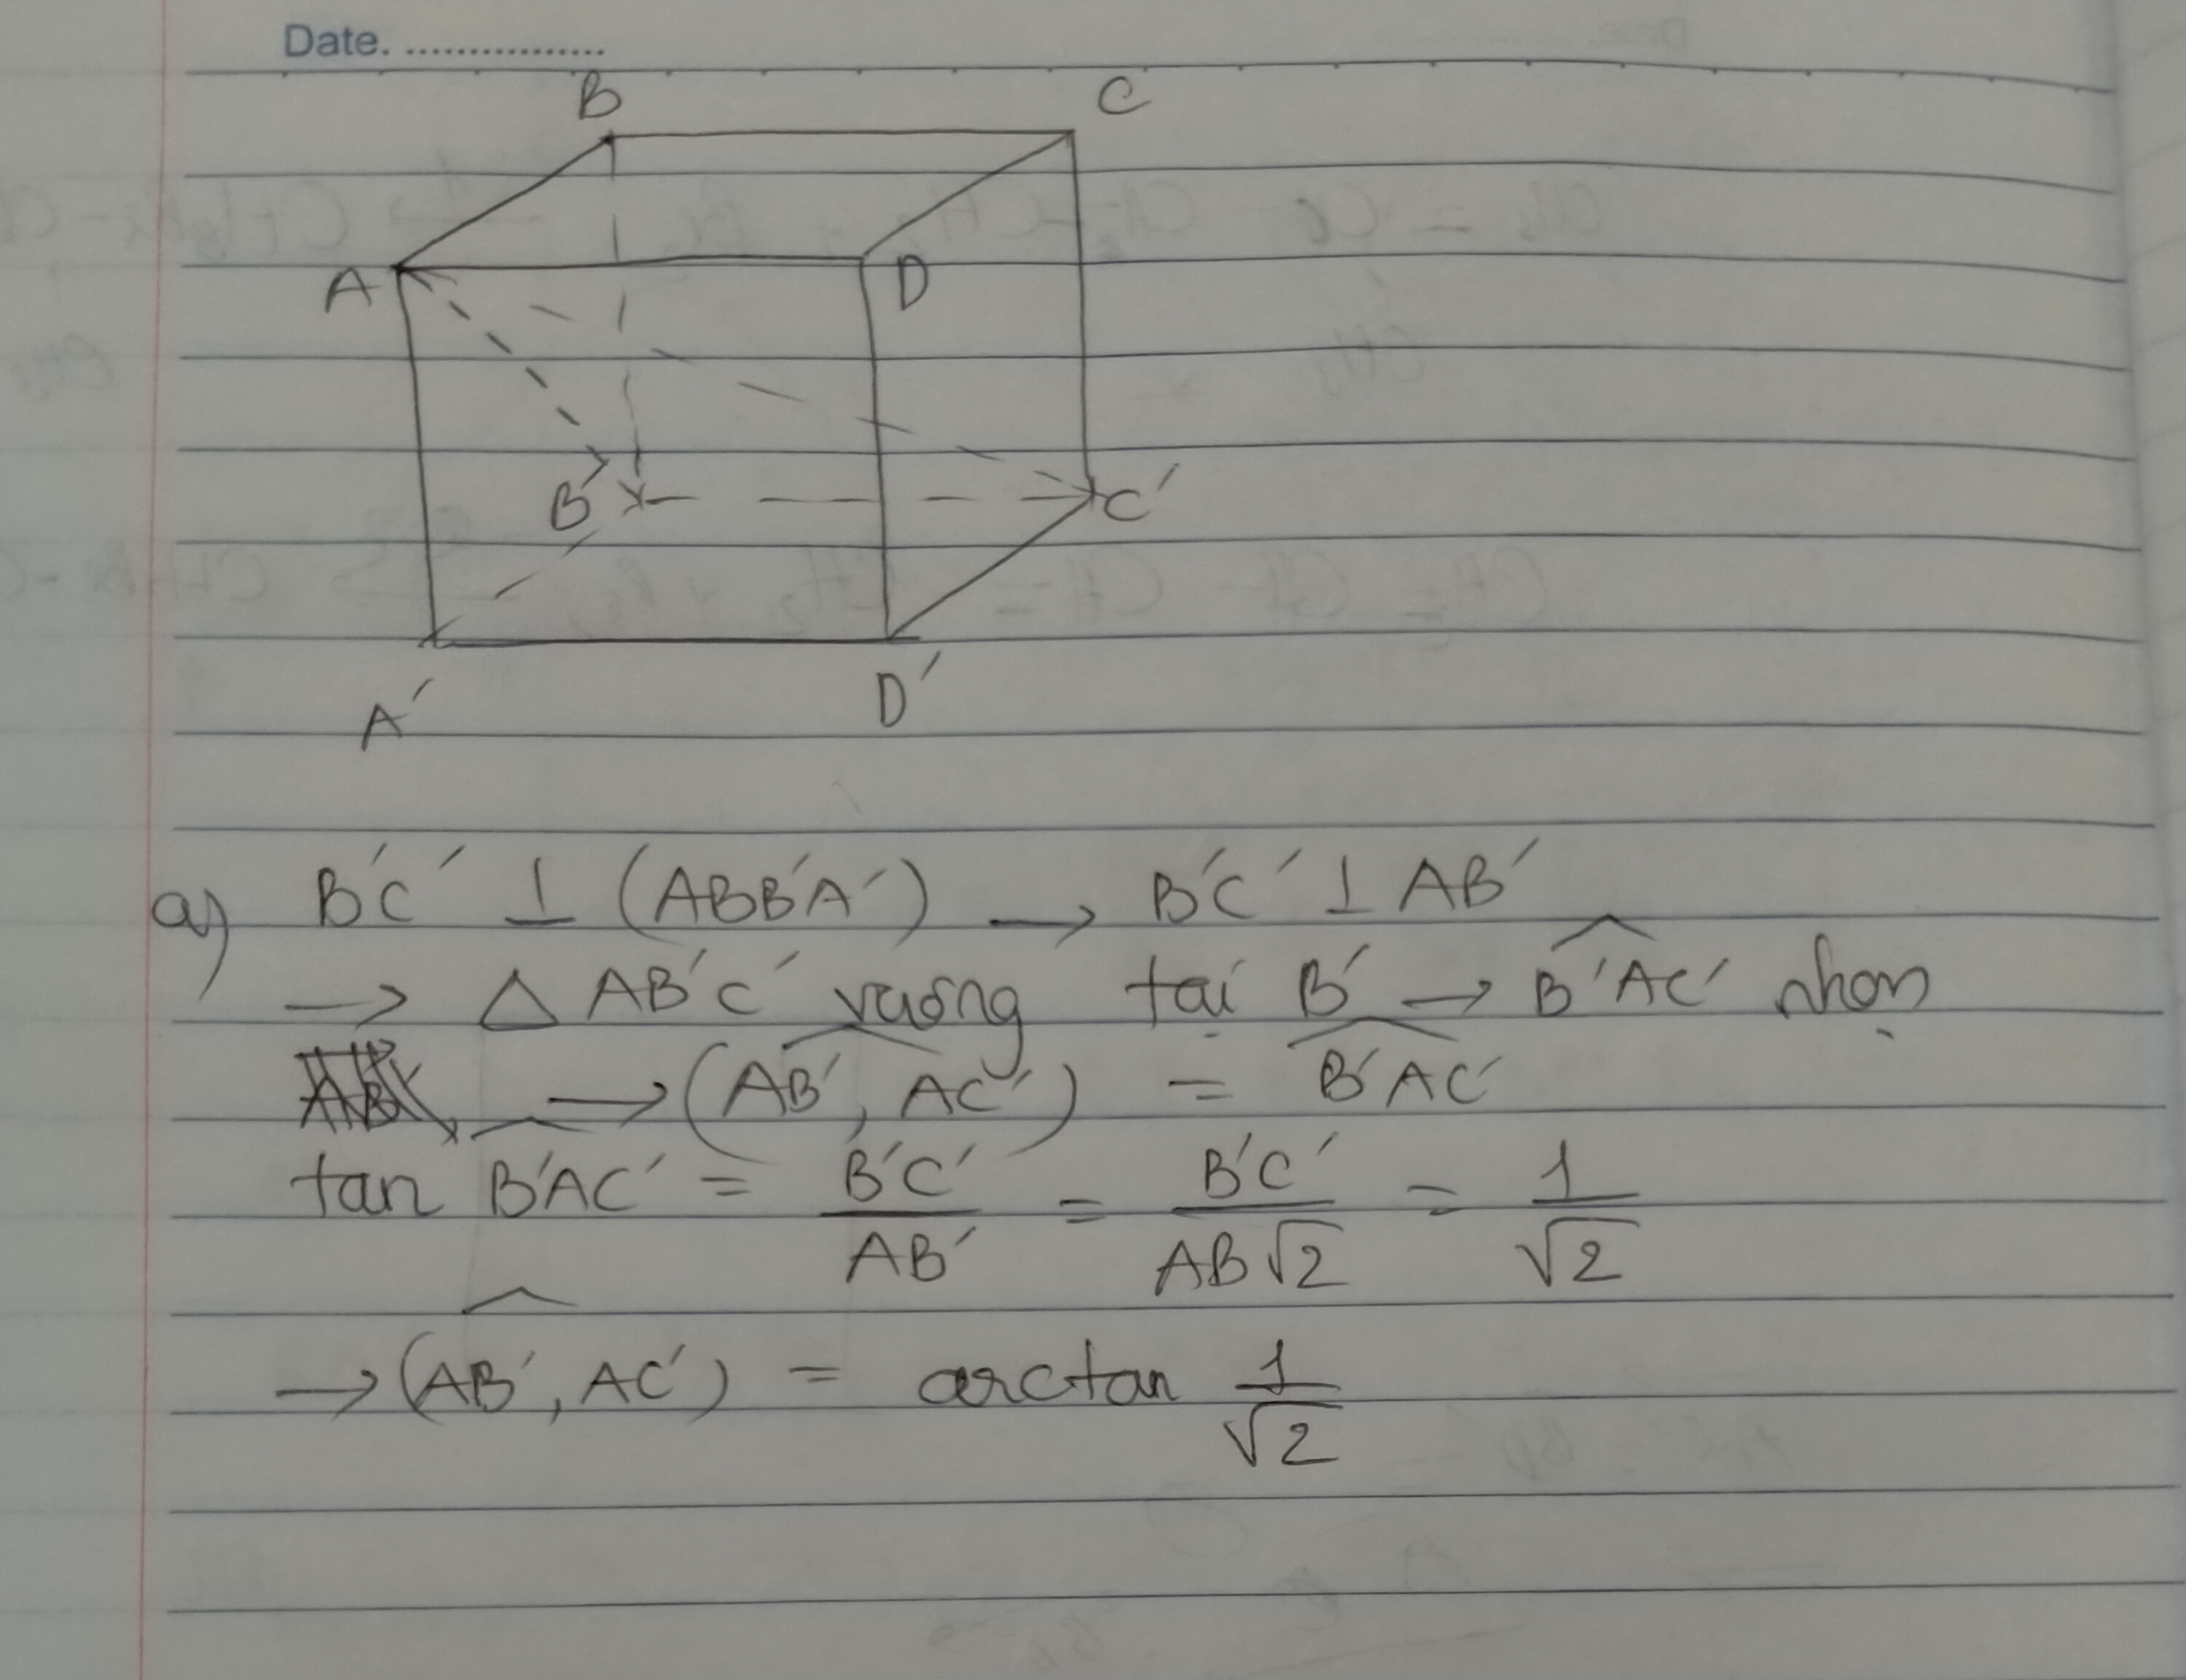 Date. ................
B C
A D
B' C'
A' D'
a) B'C' ⊥ (ABB'A') → B'C' ⊥ AB'
→ Δ AB'C' vuông tại B' → B'AC' nhọn
→ (AB', AC') = B'AC'
tan B'AC' = B'C' / AB' = B'C' / AB√2 = 1 / √2
→ (AB', AC') = arctan 1 / √2